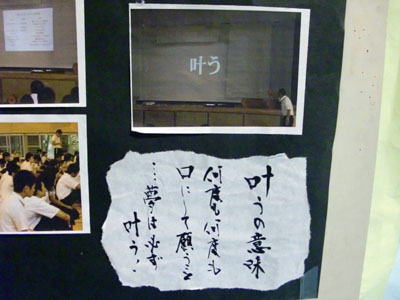 叶う
叶うの意味
何度も何度も
口にして願うこと
…夢は必ず
叶う.